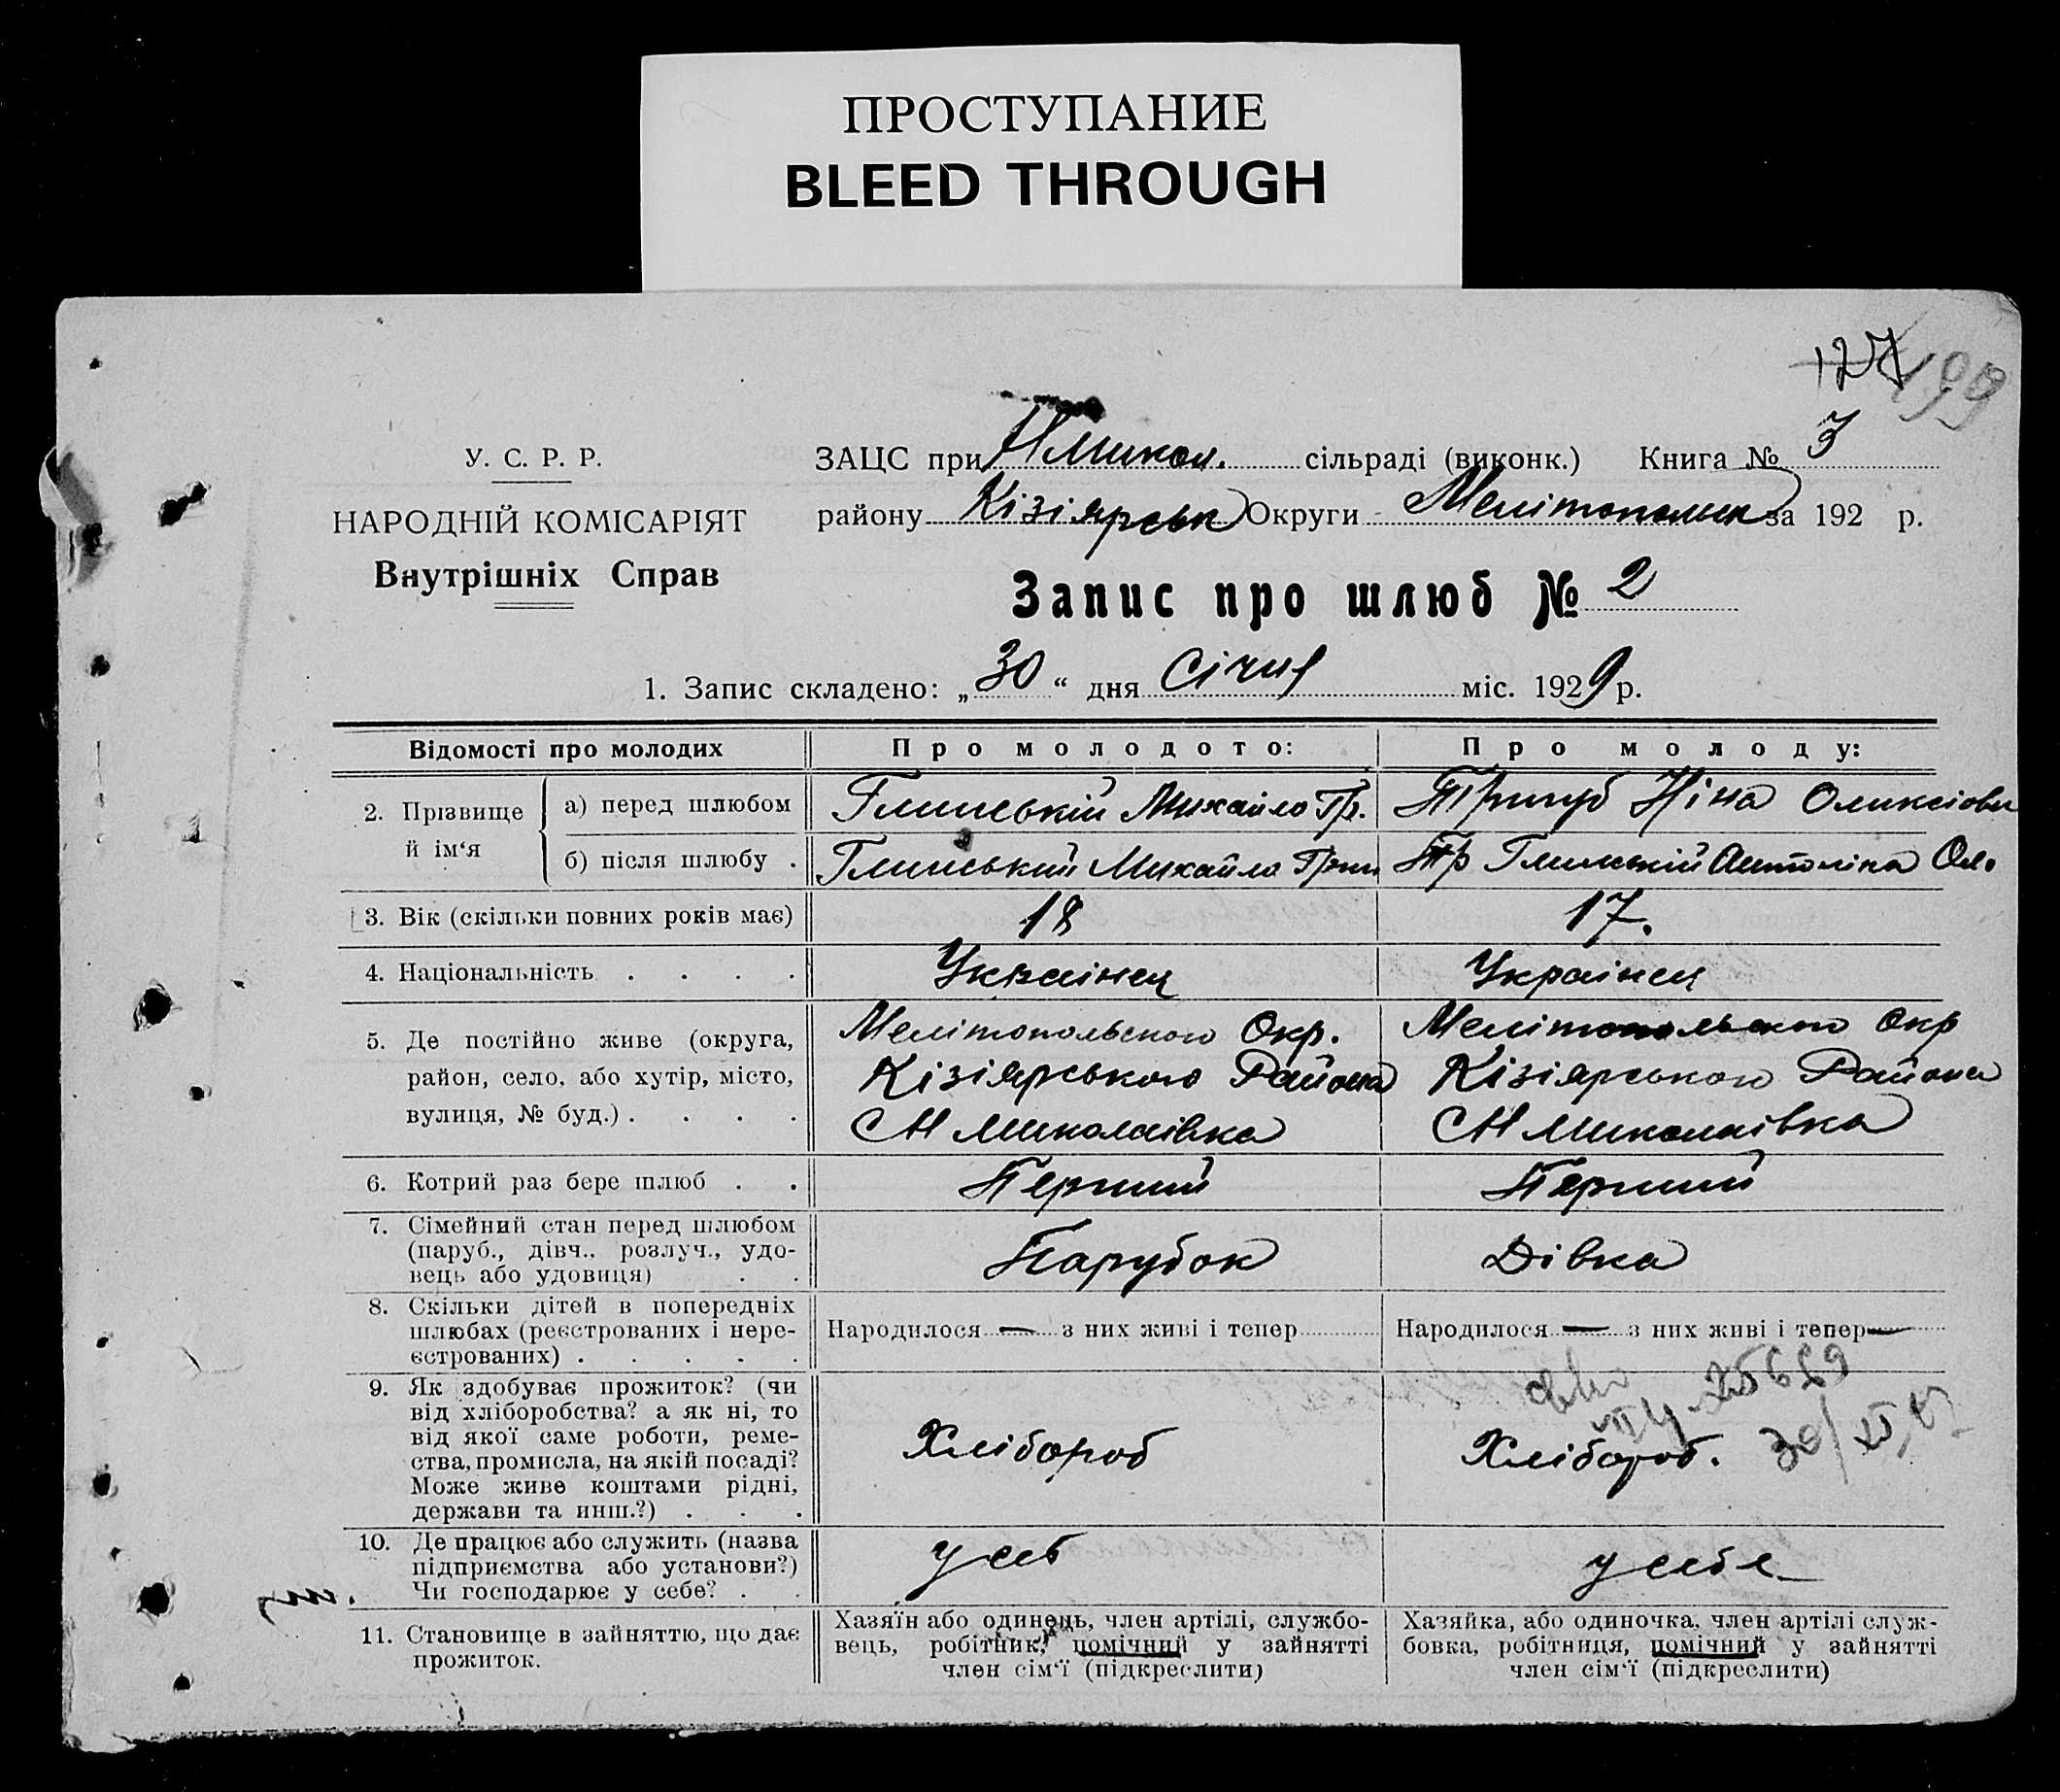 ПРОСТУПАНИЕ
BLEED THROUGH
127
199
У. С. Р. Р.
НАРОДНІЙ КОМІСАРІЯТ
Внутрішніх Справ
ЗАЦС при НМикол. сільраді (виконк.) Книга № 3
району Кізіярськ Округи Мелітопольск за 192 р.
Запис про шлюб № 2
1. Запис складено: „30“ дня Січня міс. 1929 р.
Відомості про молодих Про молодого: Про молоду:
2. Прізвище й ім‘я
а) перед шлюбом Глинській Михайло Гр. Тригуб Ніна Оликсіовн
б) після шлюбу . Глинський Михайло Григ Тр Глинській Антоліна Ол.
3. Вік (скільки повних років має) 18 17.
4. Національність . . . . Украінец Украінец
5. Де постійно живе (округа, Мелітопольского Окр. Мелітопольского Окр
район, село, або хутір, місто, Кізіярського Района Кізіярського Района
вулиця, № буд.) . . . . СН Миколаівка СН Миколаівка
6. Котрий раз бере шлюб . . Перший Перший
7. Сімейний стан перед шлюбом
(паруб., дівч., розлуч., удо-
вець або удовиця) . . Парубок Дівка
8. Скільки дітей в попередніх
шлюбах (реєстрованих і нере-
єстрованих) . . . . .
Народилося — з них живі і тепер
Народилося — з них живі і тепер —
9. Як здобуває прожиток? (чи
від хліборобства? а як ні, то
від якої саме роботи, реме-
ства, промисла, на якій посаді?
Може живе коштами рідні,
держави та инш.?) . . .
Хлібороб
Хлібороб.
10. Де працює або служить (назва
підприємства або установи?)
Чи господарює у себе? . .
у себ
у себе
11. Становище в зайняттю, що дає
прожиток.
Хазяїн або одинець, член артілі, службо-
вець, робітник, помічний у зайнятті
член сім‘ї (підкреслити)
Хазяйка, або одиночка, член артілі служ-
бовка, робітниця, помічний у зайнятті
член сім‘ї (підкреслити)